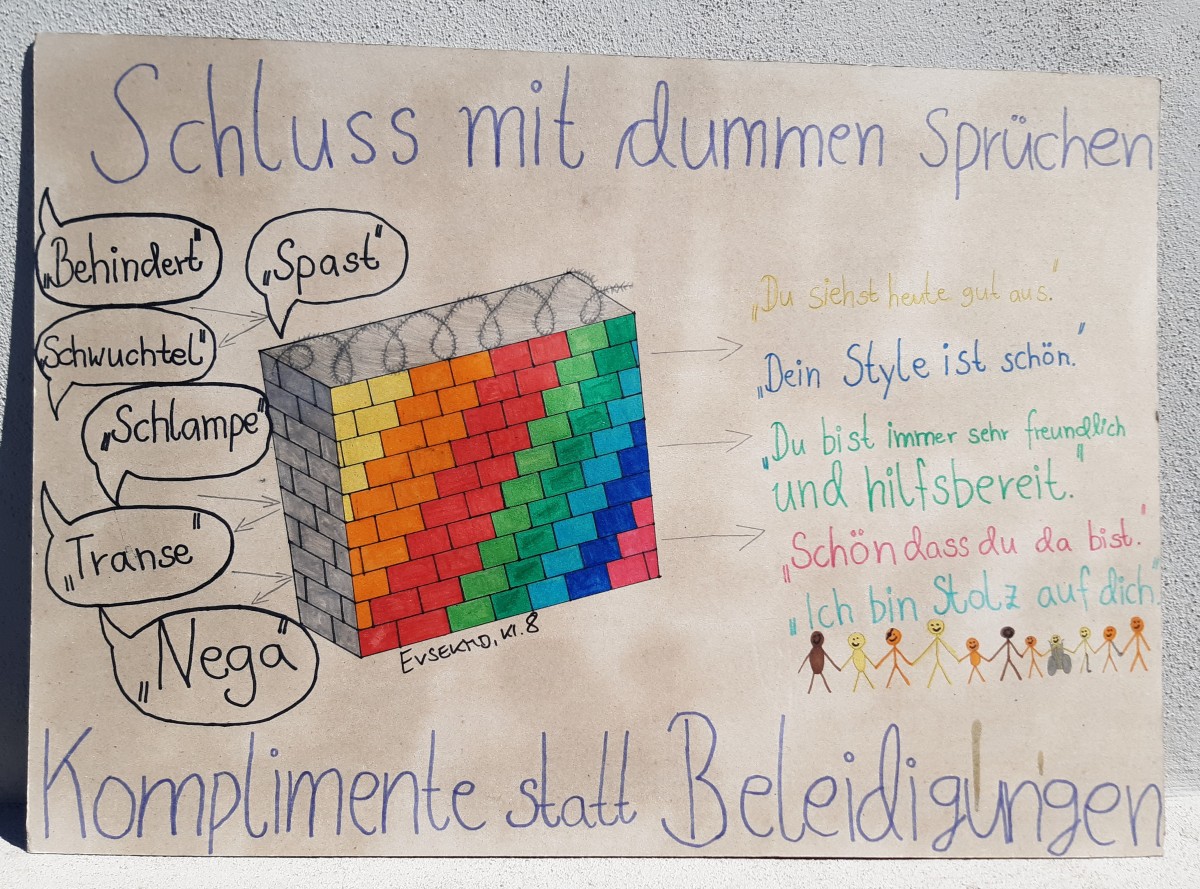 Schluss mit dummen Sprüchen
„Behindert“
„Spast“
„Schwuchtel“
„Schlampe“
„Transe“
„Nega“
„Du siehst heute gut aus.“
„Dein Style ist schön.“
„Du bist immer sehr freundlich
und hilfsbereit.“
„Schön dass du da bist.“
„Ich bin Stolz auf dich.“
Kl. 8
Komplimente statt Beleidigungen